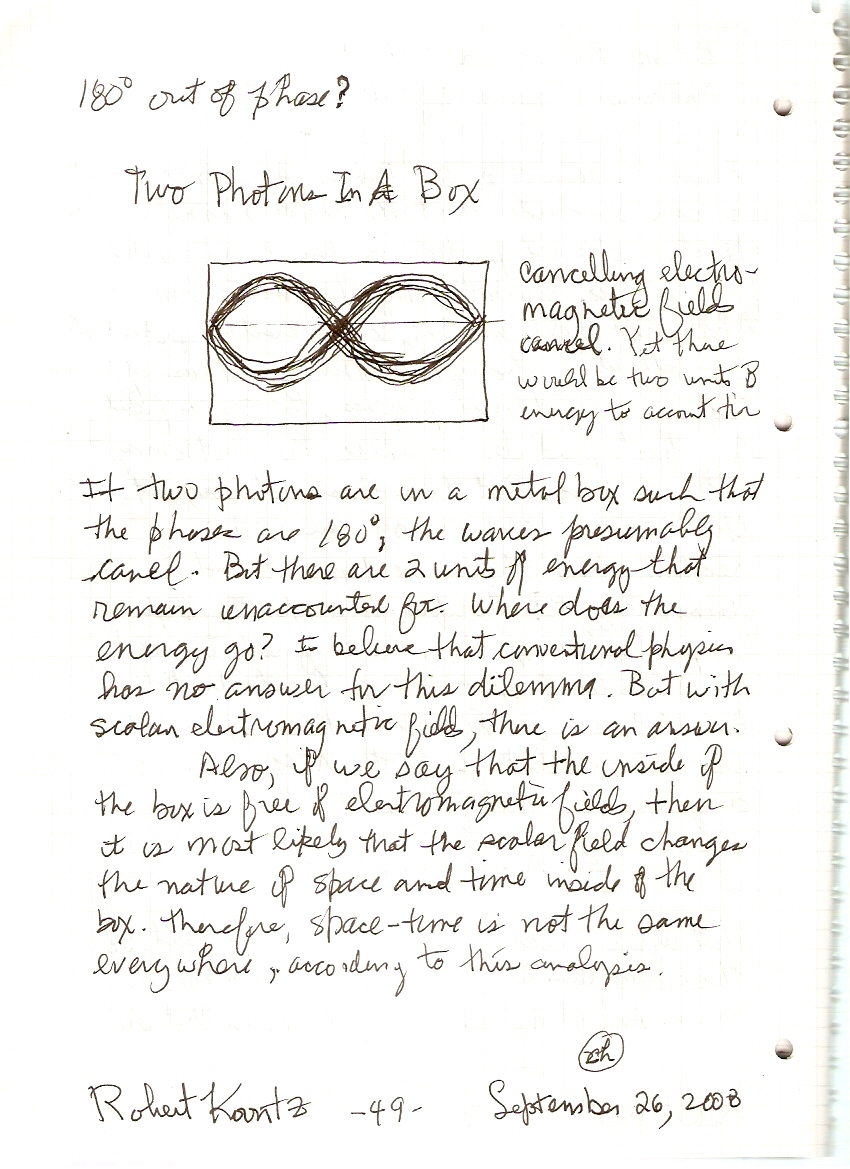 180° out of phase?
Two Photons In A Box
cancelling electro-
magnetic fields
cancel. Yet there
would be two units of
energy to account for
If two photons are in a metal box such that
the phases are 180°, the waves presumably
cancel. But there are 2 units of energy that
remain unaccounted for. Where does the
energy go? I believe that conventional physics
has no answer for this dilemma. But with
scalar electromagnetic fields, there is an answer.
Also, if we say that the inside of
the box is free of electromagnetic fields, then
it is most likely that the scalar field changes
the nature of space and time inside of the
box. Therefore, space-time is not the same
everywhere, according to this analysis.
Robert Koontz -49- September 26, 2008